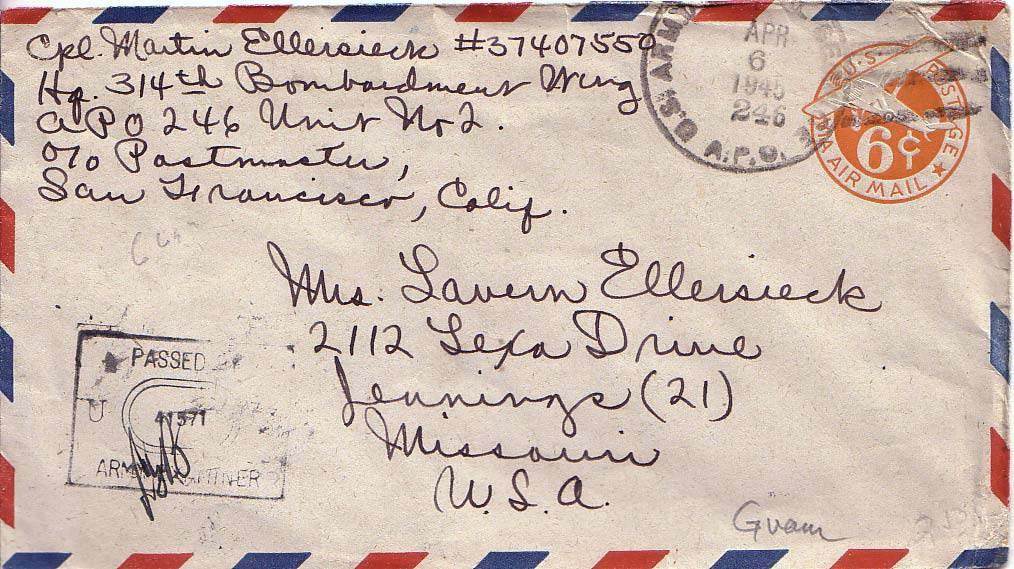 Cpl. Martin Ellersieck #37407559
Hq. 314th Bombardment Wing
APO 246 Unit No 2.
c/o Postmaster,
San Francisco, Calif.
U.S. ARMY
APR
6
1945
246
A.P.O.
U.S. POSTAGE
6¢
VIA AIR MAIL
Mrs. Lavern Ellersieck
2112 Lexa Drive
Jennings (21)
Missouri
U.S.A.
PASSED
U
41571
ARMY EXAMINER
Guam